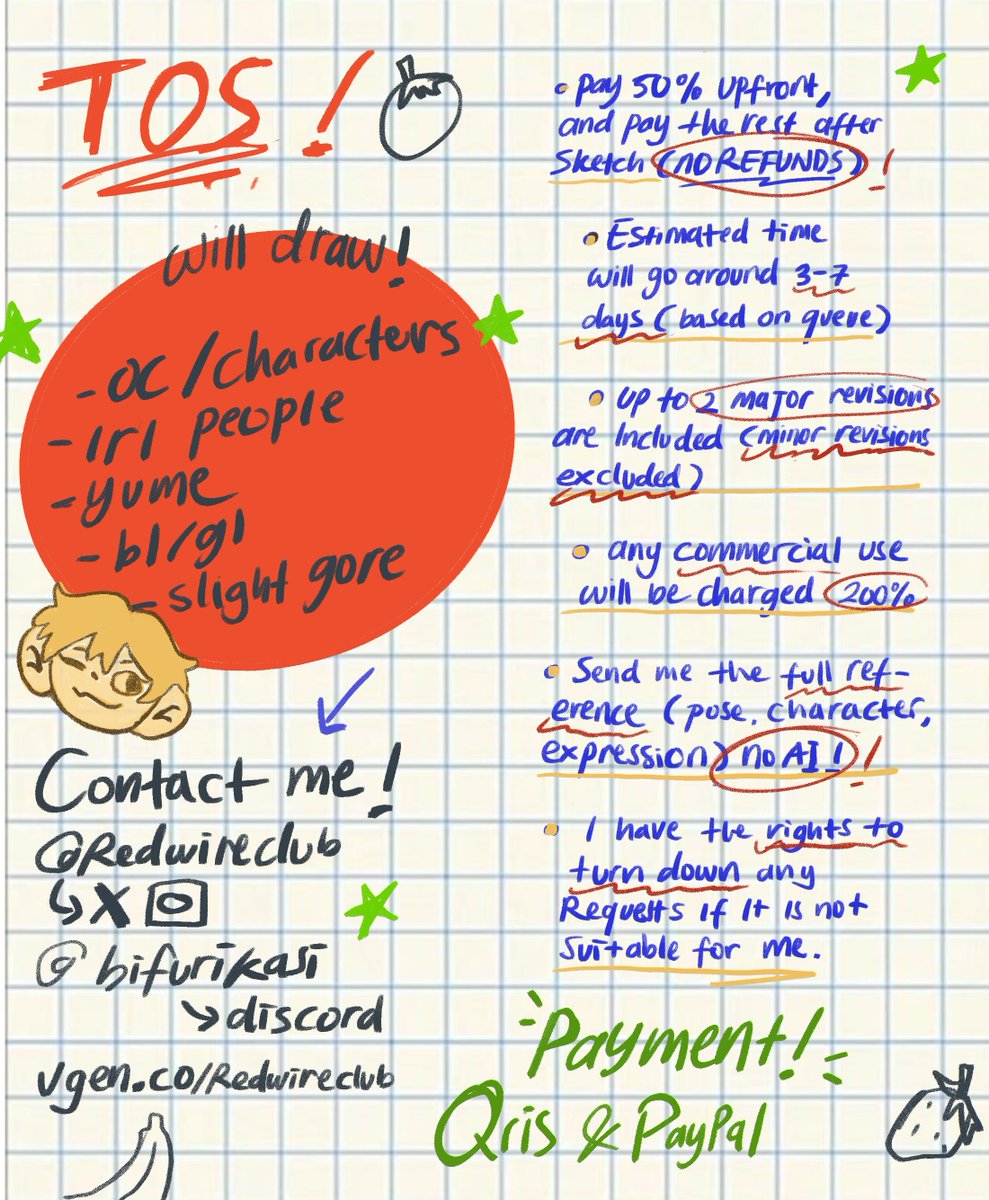 TOS!
will draw!
- OC/characters
- irl people
- yume
- bl/gl
- slight gore
Contact me!
@Redwireclub
X
@bifurikasi
discord
vgen.co/Redwireclub
• Pay 50% upfront,
and pay the rest after
Sketch (no REFUNDS)!
• Estimated time
will go around 3-7
days (based on queue)
• up to 2 major revisions
are included (minor revisions
excluded)
• any commercial use
will be charged 200%
• Send me the full ref-
erence (pose, character,
expression) no AI!!
• I have the rights to
turn down any
Requests if it is not
suitable for me.
Payment!
Qris & PayPal